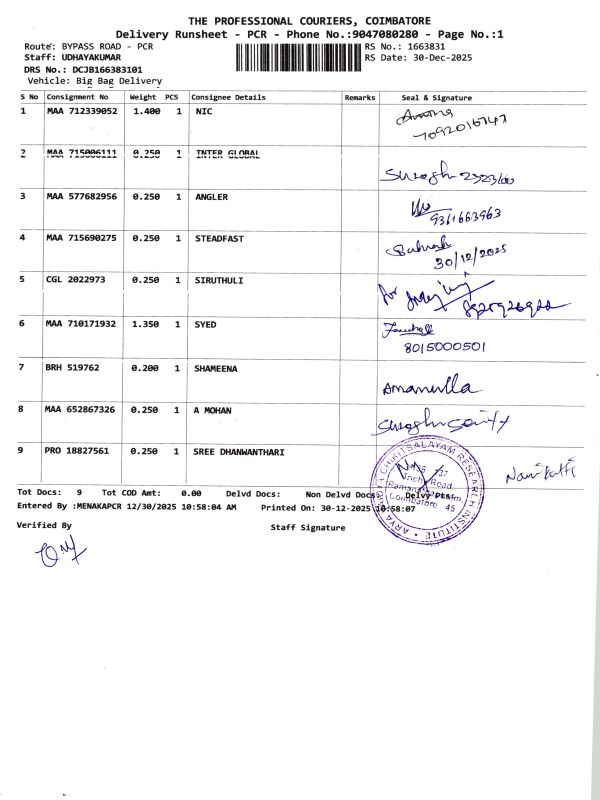 THE PROFESSIONAL COURIERS, COIMBATORE
Delivery Runsheet - PCR - Phone No.:9047080280 - Page No.:1
Route: BYPASS ROAD - PCR RS No.: 1663831
Staff: UDHAYAKUMAR RS Date: 30-Dec-2025
DRS No.: DCJB166383101
Vehicle: Big Bag Delivery
S No Consignment No Weight PCS Consignee Details Remarks Seal & Signature
1 MAA 712339052 1.400 1 NIC
2 MAA 715006111 0.250 1 INTER GLOBAL
3 MAA 577682956 0.250 1 ANGLER
9361663963
4 MAA 715690275 0.250 1 STEADFAST
30/12/2025
5 CGL 2022973 0.250 1 SIRUTHULI
6 MAA 710171932 1.350 1 SYED
8015000501
7 BRH 519762 0.200 1 SHAMEENA
Amanulla
8 MAA 652867326 0.250 1 A MOHAN
9 PRO 18827561 0.250 1 SREE DHANWANTHARI
Tot Docs: 9 Tot COD Amt: 0.00 Delvd Docs: Non Delvd Docs: Delvy Ptsm
Entered By :MENAKAPCR 12/30/2025 10:58:04 AM Printed On: 30-12-2025 10:58:07
Verified By Staff Signature
CHIKITSALAYAM RESEARCH INSTITUTE
Coimbatore 45